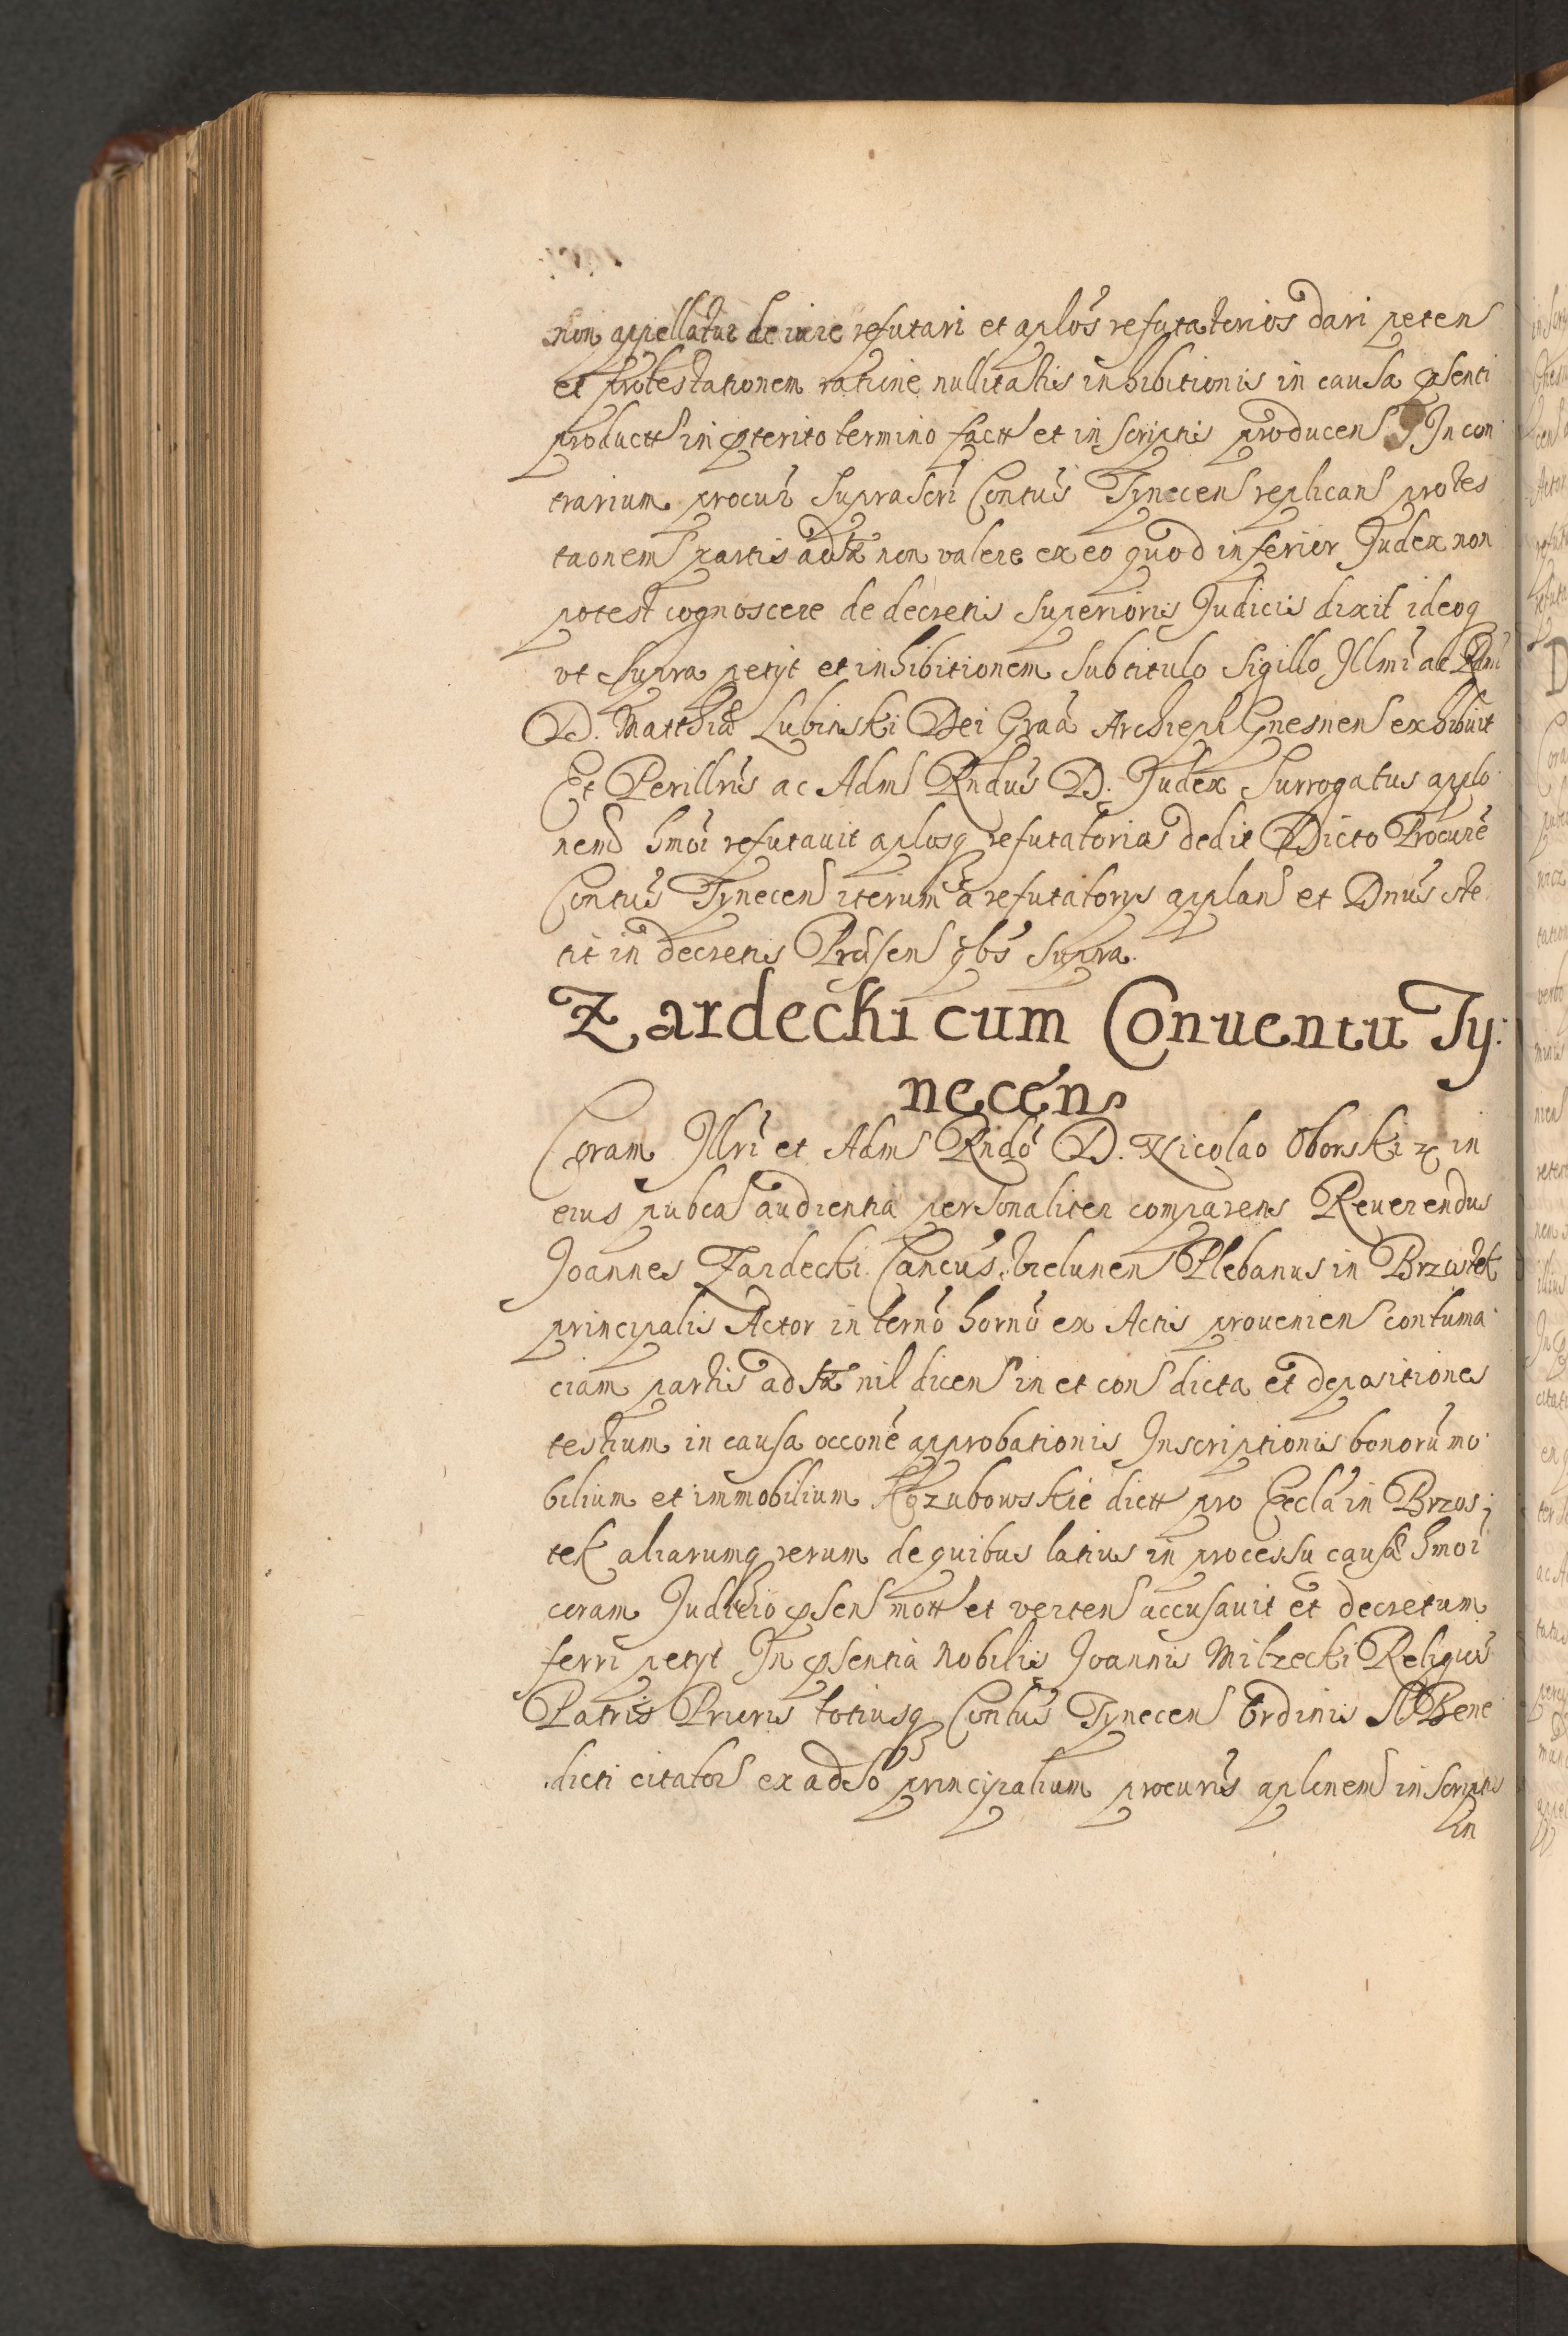 non appellatur de iure refutari et aplos refutatorios dari petens
et protestationem ratione nullitatis inhibitionis in causa psenti
product in pterito termino fact et in scriptis producens In con
trarium procur suprascri Contus Tynecens replicans protes
taonem partis adsæ non valere ex eo quod inferior Judex non
potest cognoscere de decretis superioris Judicis dixit ideoq
vt supra petyt et inhibitionem sub titulo sigillo Illmi ac Rdmi
D. Matthiæ Lubinski Dei Graa Archiepi Gnesnens exhibuit
Et Perillris ac Adms Rndus D. Judex Surrogatus applo
nems hmoi refutauit aplosq refutatorias dedit Dicto Procure
Contus Tynecens iterum a refutatorys applans et Dnus ste
tit in decretis Præsens qbs supra
Zardecki cum Conuentu Ty:
necens
Coram Illri et Adms Rndo D. Nicolao Oborski &c in
eius pubca audientia personaliter comparens Reuerendus
Joannes Zardecki Cancus Vielunens Plebanus in Brzostek
principalis Actor in terno horno ex Actis proueniens contuma
ciam partis adsæ nil dicens in et cons dicta et depositiones
testium in causa occone approbationis Inscriptionis bonorum mo
bilium et immobilium Kozubowskie dict pro Eccla in Brzos
tek aliarumq rerum de quibus latius in processu causæ hmoi
coram Judicio psens mott et vertens accusauit et decretum
ferri petyt In psentia Nobilis Joannis Milzecki Religios
Patris Prioris totiusq Contus Tynecens Ordinis S Bene
dicti citators ex adso principalium procuris aplonems in scriptis
in